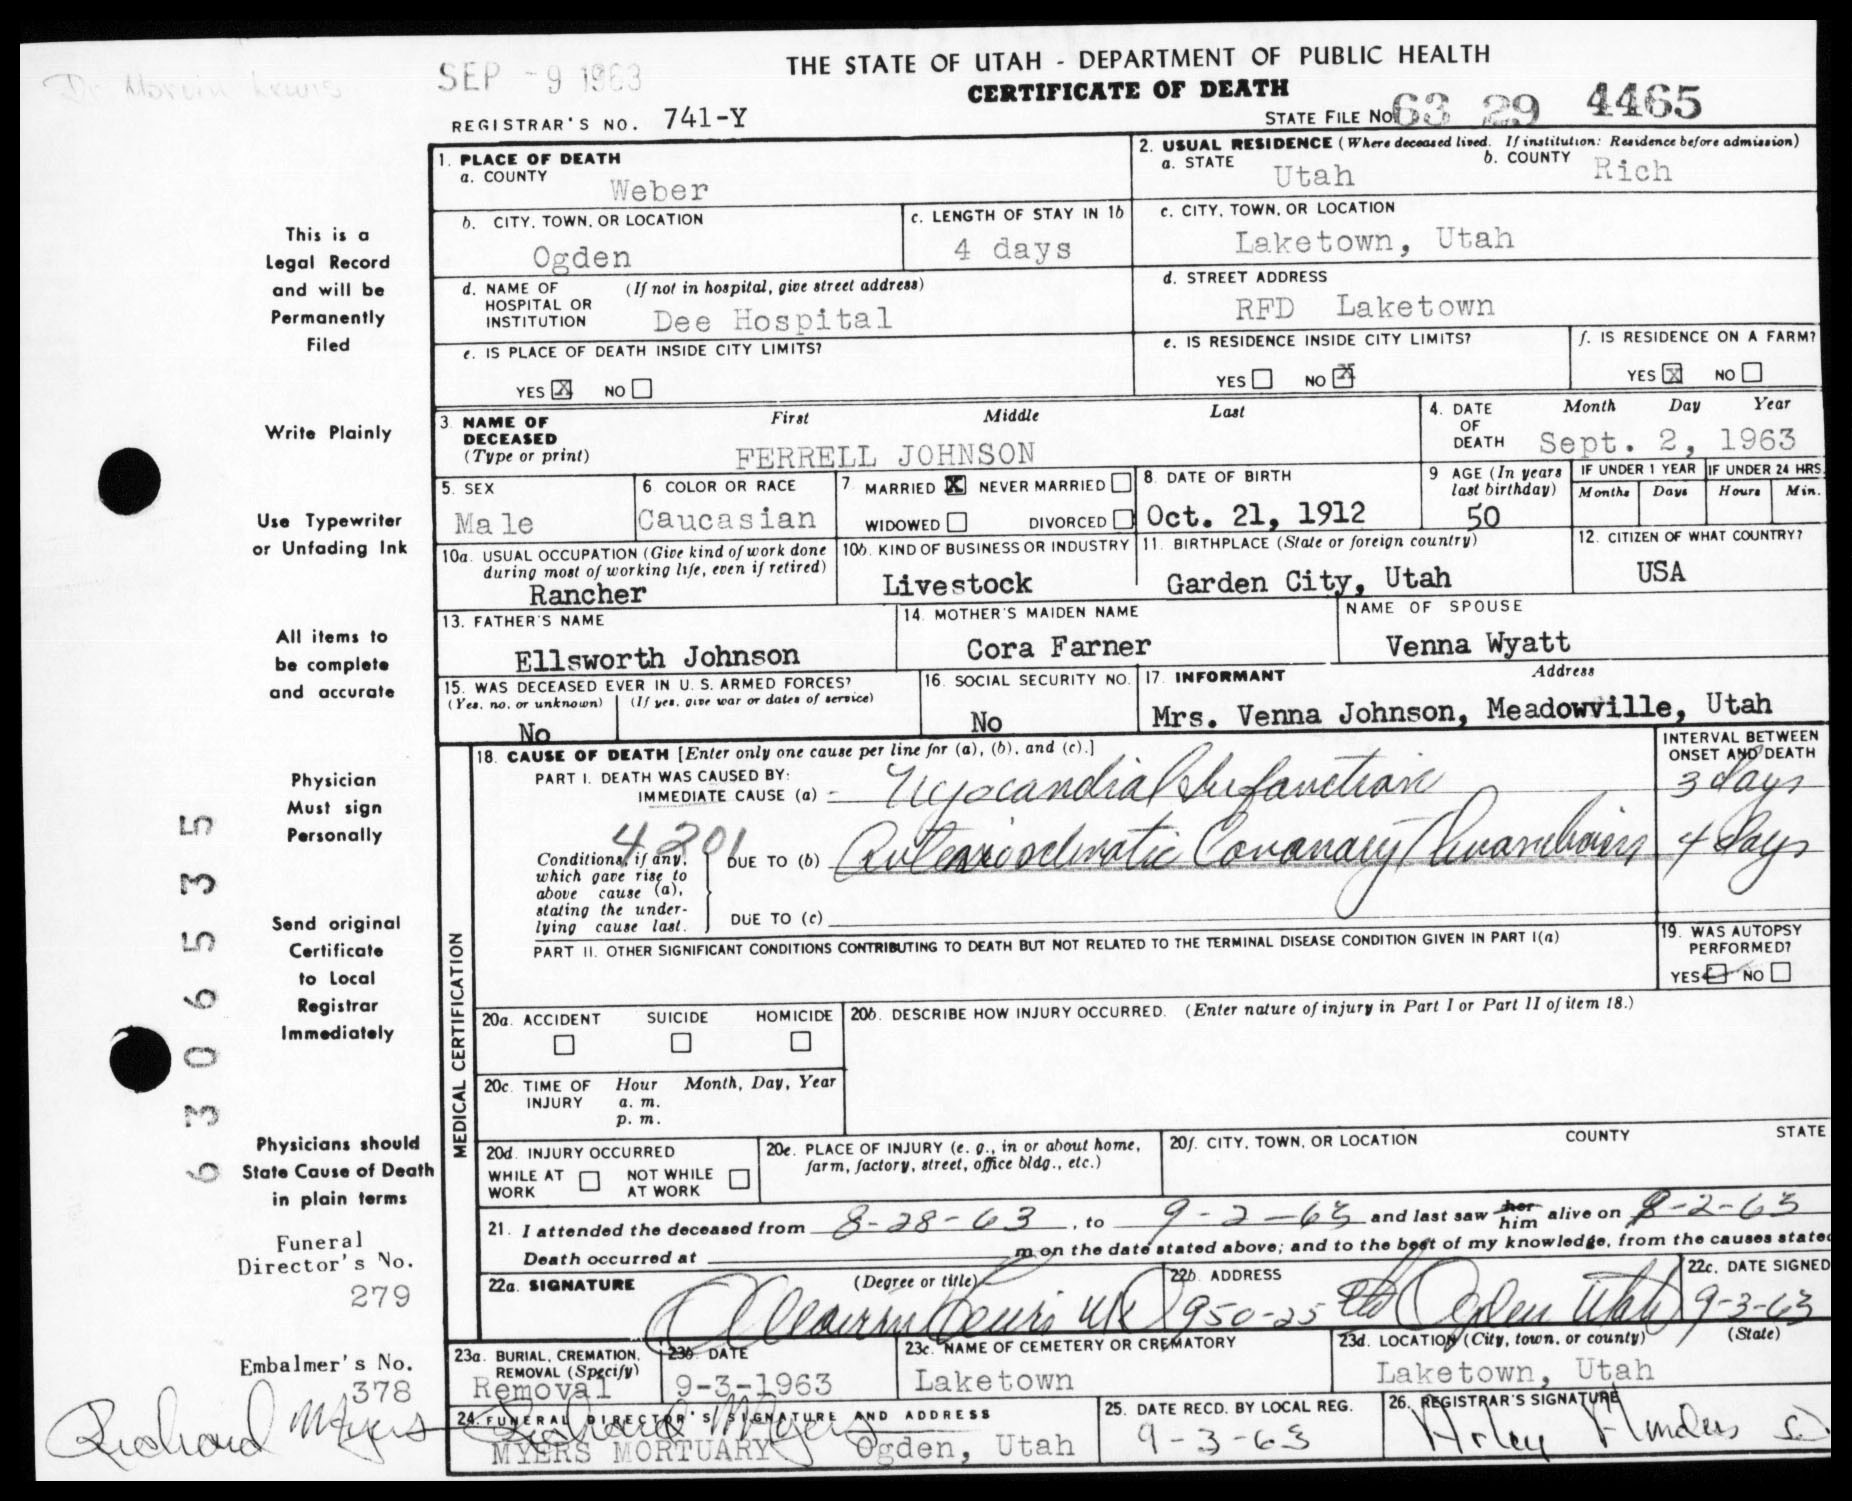 THE STATE OF UTAH - DEPARTMENT OF PUBLIC HEALTH
Dr Marvin Lewis
SEP -9 1963
CERTIFICATE OF DEATH
REGISTRAR'S NO. 741-Y
STATE FILE NO. 63 29 4465
1. PLACE OF DEATH
a. COUNTY
Weber
2. USUAL RESIDENCE (Where deceased lived. If institution: Residence before admission)
a. STATE Utah b. COUNTY Rich
b. CITY, TOWN, OR LOCATION
Ogden
c. LENGTH OF STAY IN 1b
4 days
c. CITY, TOWN, OR LOCATION
Laketown, Utah
d. NAME OF HOSPITAL OR INSTITUTION (If not in hospital, give street address)
Dee Hospital
d. STREET ADDRESS
RFD Laketown
e. IS PLACE OF DEATH INSIDE CITY LIMITS?
YES X NO
e. IS RESIDENCE INSIDE CITY LIMITS?
YES NO X
f. IS RESIDENCE ON A FARM?
YES X NO
3. NAME OF DECEASED (Type or print)
First Middle Last
FERRELL JOHNSON
4. DATE OF DEATH
Month Day Year
Sept. 2, 1963
5. SEX
Male
6 COLOR OR RACE
Caucasian
7. MARRIED X NEVER MARRIED
WIDOWED DIVORCED
8. DATE OF BIRTH
Oct. 21, 1912
9 AGE (In years last birthday)
50
IF UNDER 1 YEAR
Months Days
IF UNDER 24 HRS.
Hours Min.
10a. USUAL OCCUPATION (Give kind of work done during most of working life, even if retired)
Rancher
10b. KIND OF BUSINESS OR INDUSTRY
Livestock
11. BIRTHPLACE (State or foreign country)
Garden City, Utah
12. CITIZEN OF WHAT COUNTRY?
USA
13. FATHER'S NAME
Ellsworth Johnson
14. MOTHER'S MAIDEN NAME
Cora Farner
NAME OF SPOUSE
Venna Wyatt
15. WAS DECEASED EVER IN U. S. ARMED FORCES?
(Yes, no, or unknown) (If yes, give war or dates of service)
No
16. SOCIAL SECURITY NO.
No
17. INFORMANT Address
Mrs. Venna Johnson, Meadowville, Utah
MEDICAL CERTIFICATION
18. CAUSE OF DEATH [Enter only one cause per line for (a), (b), and (c).]
INTERVAL BETWEEN ONSET AND DEATH
PART I. DEATH WAS CAUSED BY:
IMMEDIATE CAUSE (a) Myocardial Infarction 3 days
4201
Conditions, if any, which gave rise to above cause (a), stating the underlying cause last.
DUE TO (b) Arteriosclerotic Coronary Thrombosis 4 days
DUE TO (c)
PART II. OTHER SIGNIFICANT CONDITIONS CONTRIBUTING TO DEATH BUT NOT RELATED TO THE TERMINAL DISEASE CONDITION GIVEN IN PART I(a)
19. WAS AUTOPSY PERFORMED?
YES NO
20a. ACCIDENT SUICIDE HOMICIDE
20b. DESCRIBE HOW INJURY OCCURRED. (Enter nature of injury in Part I or Part II of item 18.)
20c. TIME OF INJURY Hour Month, Day, Year
a. m.
p. m.
20d. INJURY OCCURRED
WHILE AT WORK NOT WHILE AT WORK
20e. PLACE OF INJURY (e. g., in or about home, farm, factory, street, office bldg., etc.)
20f. CITY, TOWN, OR LOCATION COUNTY STATE
21. I attended the deceased from 8-28-63, to 9-2-63 and last saw her him alive on 9-2-63
Death occurred at m on the date stated above; and to the best of my knowledge, from the causes stated
22a. SIGNATURE (Degree or title)
Marvin Lewis MD
22b. ADDRESS
950-25 Ogden Utah
22c. DATE SIGNED
9-3-63
23a. BURIAL, CREMATION, REMOVAL (Specify)
Removal
23b. DATE
9-3-1963
23c. NAME OF CEMETERY OR CREMATORY
Laketown
23d. LOCATION (City, town, or county) (State)
Laketown, Utah
24. FUNERAL DIRECTOR'S SIGNATURE AND ADDRESS
Richard Myers
MYERS MORTUARY Ogden, Utah
25. DATE RECD. BY LOCAL REG.
9-3-63
26. REGISTRAR'S SIGNATURE
This is a
Legal Record
and will be
Permanently
Filed
Write Plainly
Use Typewriter
or Unfading Ink
All items to
be complete
and accurate
Physician
Must sign
Personally
Send original
Certificate
to Local
Registrar
Immediately
Physicians should
State Cause of Death
in plain terms
Funeral
Director's No.
279
Embalmer's No.
378
Richard Myers
63065335